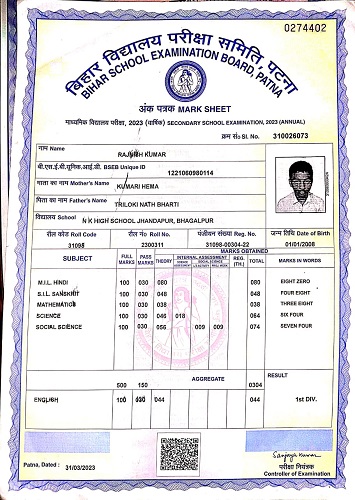 0274402
बिहार विद्यालय परीक्षा समिति, पटना
BIHAR SCHOOL EXAMINATION BOARD, PATNA
अंक पत्रक MARK SHEET
माध्यमिक विद्यालय परीक्षा, 2023 (वार्षिक) SECONDARY SCHOOL EXAMINATION, 2023 (ANNUAL)
क्रम सं० Sl. No. 310026073
नाम Name
RAJNISH KUMAR
बी.एस.ई.बी.यूनिक.आई.डी. BSEB Unique ID
1221060980114
माता का नाम Mother's Name
KUMARI HEMA
पिता का नाम Father's Name
TRILOKI NATH BHARTI
विद्यालय School
N K HIGH SCHOOL JHANDAPUR, BHAGALPUR
रौल कोड Roll Code रौल न० Roll No. पंजीयन संख्या Reg. No. जन्म तिथि Date of Birth
31098 2300311 31098-00304-22 01/01/2008
MARKS OBTAINED
SUBJECT FULL MARKS PASS MARKS THEORY INTERNAL ASSESSMENT REG. (TH.) TOTAL MARKS IN WORDS
M.I.L. HINDI 100 030 080 080 EIGHT ZERO
S.I.L. SANSKRIT 100 030 048 048 FOUR EIGHT
MATHEMATICS 100 030 038 038 THREE EIGHT
SCIENCE 100 030 046 018 064 SIX FOUR
SOCIAL SCIENCE 100 030 056 009 009 074 SEVEN FOUR
AGGREGATE RESULT
500 150 0304
ENGLISH 100 030 044 044 1st DIV.
Sanjay Kumar
Patna, Dated : 31/03/2023
परीक्षा नियंत्रक
Controller of Examination